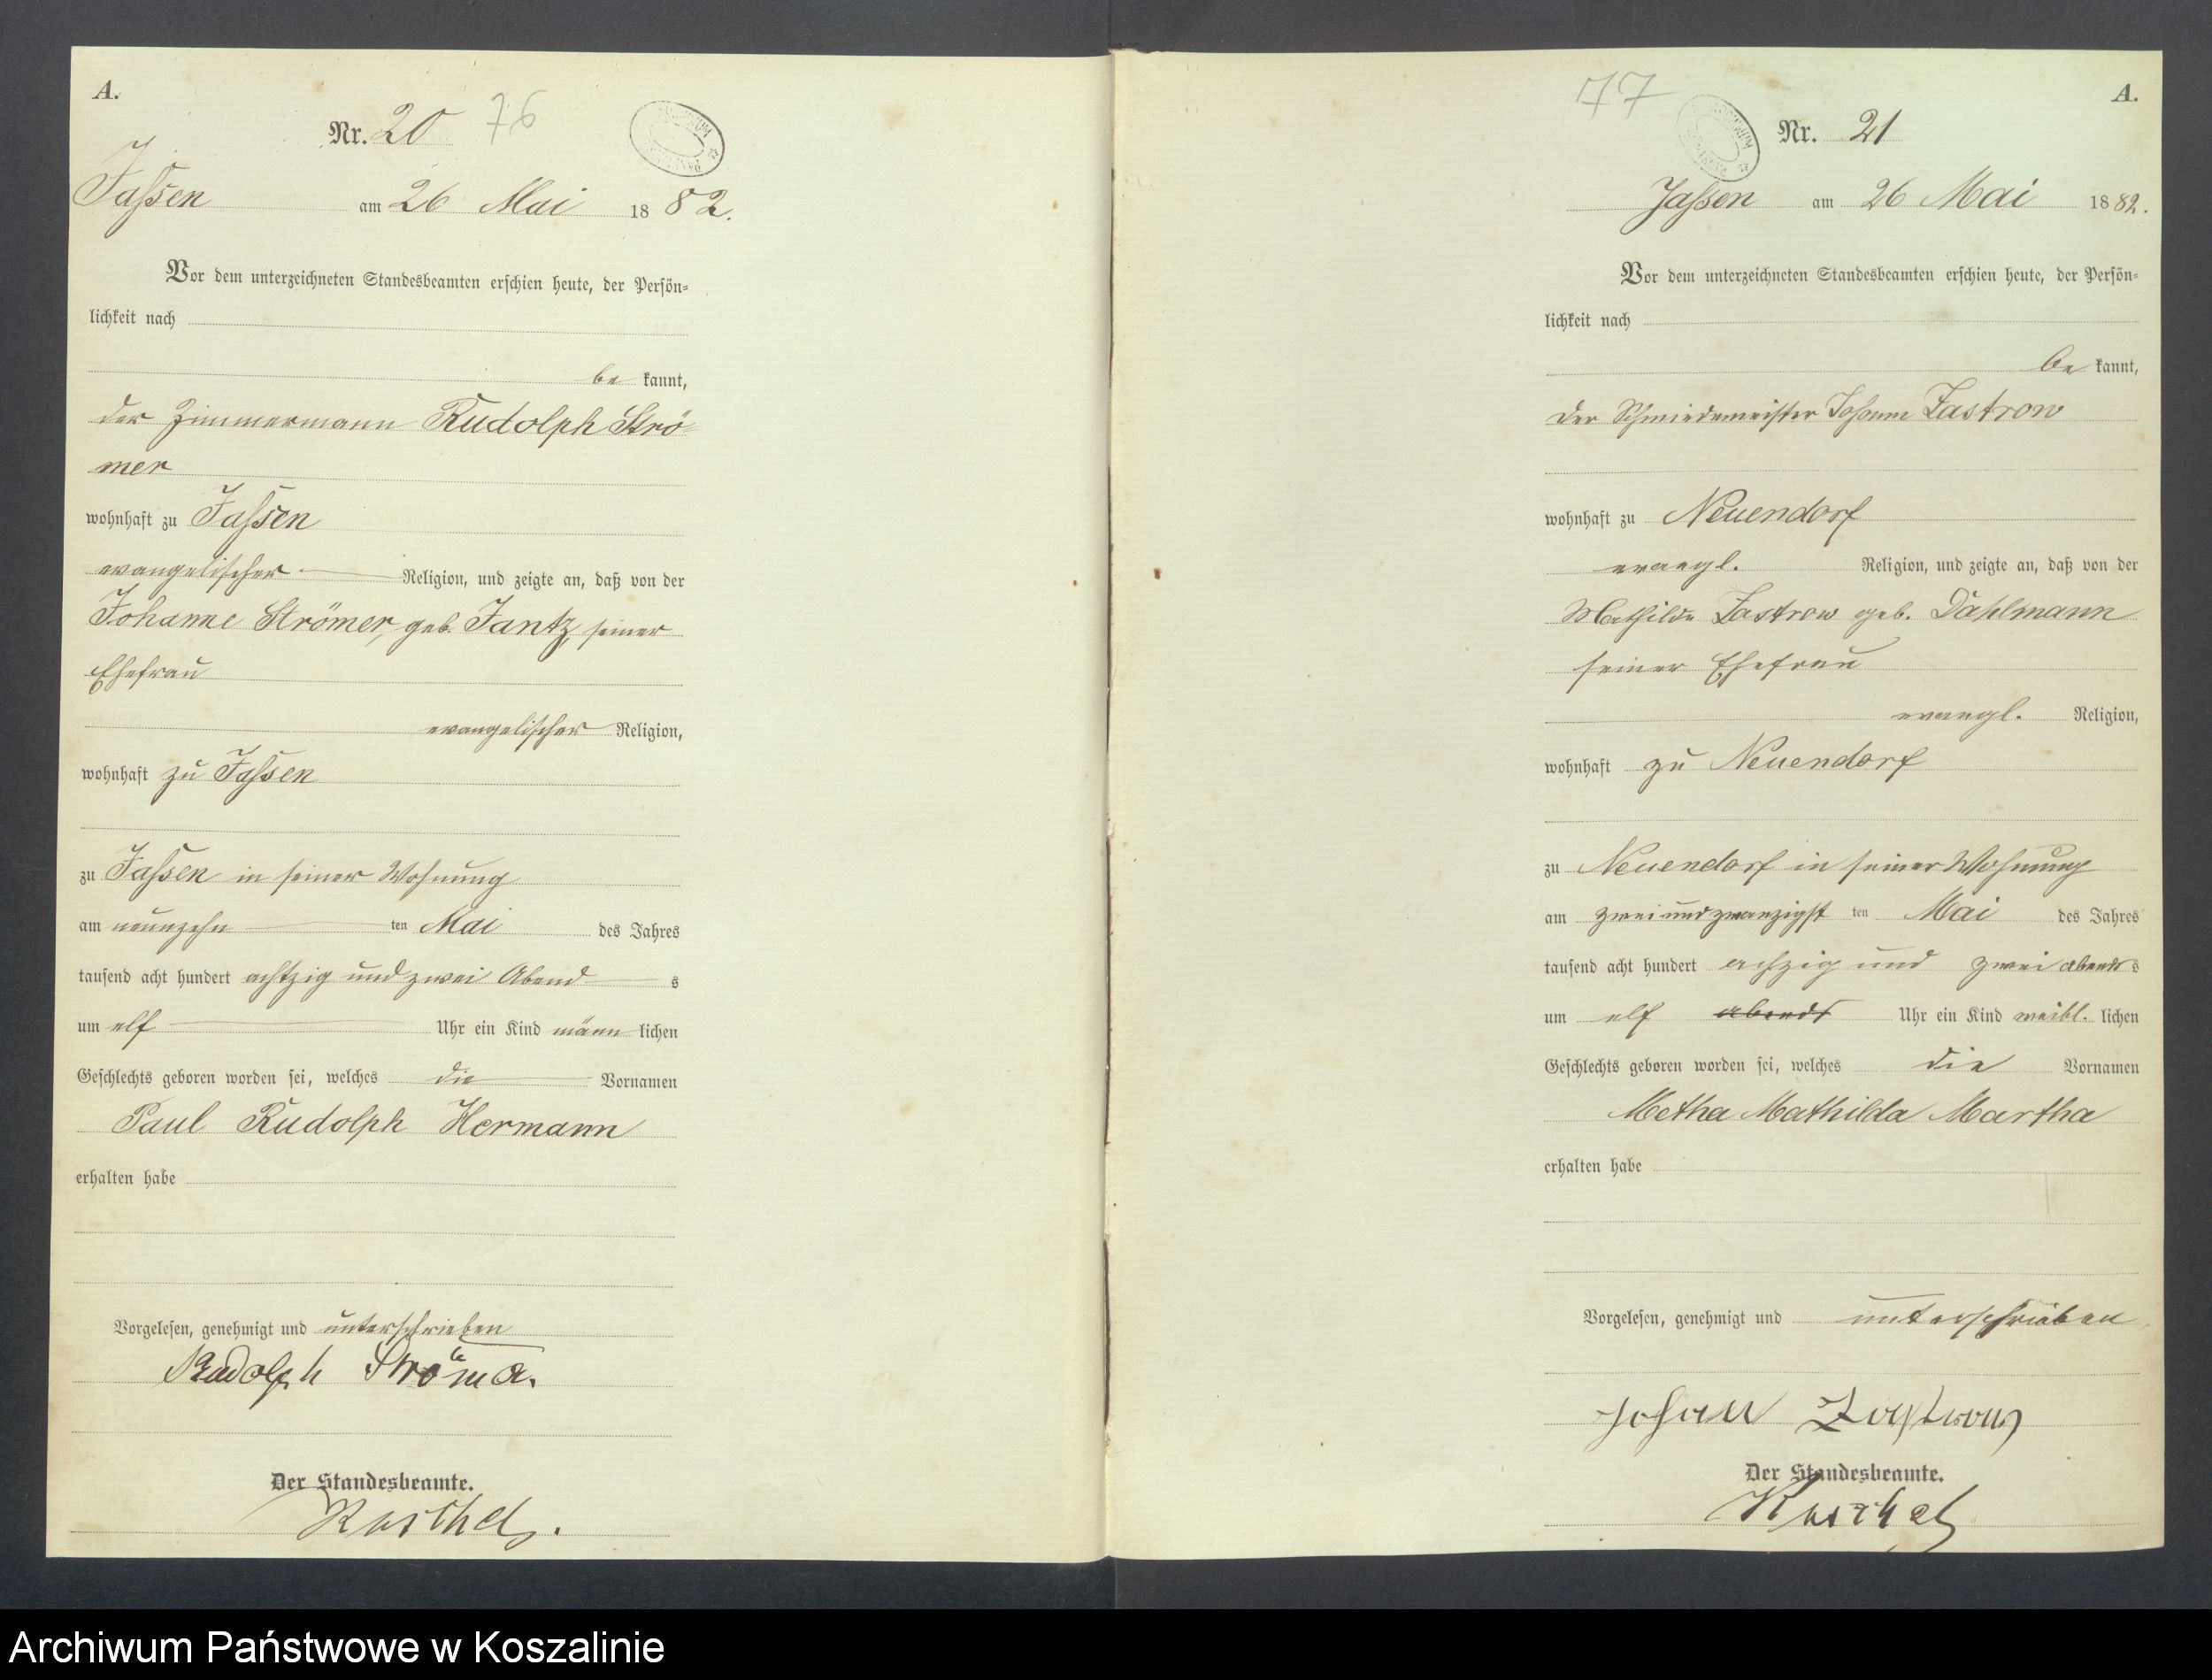 A.
Nr. 20 76
Jassen am 26 Mai 1882.
Vor dem unterzeichneten Standesbeamten erschien heute, der Persön-
lichkeit nach
be kannt,
der Zimmermann Rudolph Strö-
mer
wohnhaft zu Jassen
evangelischer Religion, und zeigte an, daß von der
Johanne Strömer, geb. Jantz, seiner
Ehefrau
evangelischer Religion,
wohnhaft zu Jassen
zu Jassen in seiner Wohnung
am neunzehn ten Mai des Jahres
tausend acht hundert achtzig und zwei Abend s
um elf Uhr ein Kind männ lichen
Geschlechts geboren worden sei, welches die Vornamen
Paul Rudolph Hermann
erhalten habe
Vorgelesen, genehmigt und unterschrieben
Rudolph Strömer.
Der Standesbeamte.
77 A.
Nr. 21
Jassen am 26 Mai 1882.
Vor dem unterzeichneten Standesbeamten erschien heute, der Persön-
lichkeit nach
be kannt,
der Schmiedemeister Johann Zastrow
wohnhaft zu Neuendorf
evangl. Religion, und zeigte an, daß von der
Mathilde Zastrow geb. Dahlmann
seiner Ehefrau
evangl. Religion,
wohnhaft zu Neuendorf
zu Neuendorf in seiner Wohnung
am zweiundzwanzigst ten Mai des Jahres
tausend acht hundert achzig und zwei abends
um elf abends Uhr ein Kind weibl. lichen
Geschlechts geboren worden sei, welches die Vornamen
Metha Mathilda Martha
erhalten habe
Vorgelesen, genehmigt und unterschrieben
Johan Zastrow
Der Standesbeamte.
Archiwum Państwowe w Koszalinie